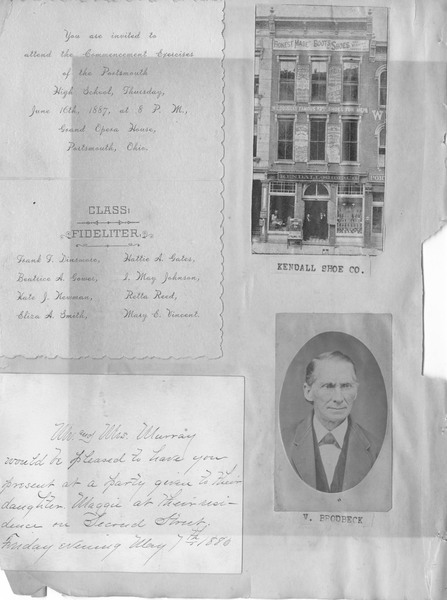 You are invited to
attend the Commencement Exercises
of the Portsmouth
High School, Thursday,
June 16th, 1887, at 8 P. M.,
Grand Opera House,
Portsmouth, Ohio.
CLASS:
FIDELITER.
Frank T. Dinsmore, Hattie A. Gates,
Beatrice A. Gower, I. May Johnson,
Kate J. Newman, Retta Reed,
Eliza A. Smith, Mary E. Vincent.
HONEST MADE BOOTS & SHOES
KENDALL SHOE CO.
Mr. and Mrs. Murray
would be pleased to have you
present at a party given to their
daughter Maggie at their resi-
dence on Second Street,
Friday evening May 7th 1880
V. BRODBECK